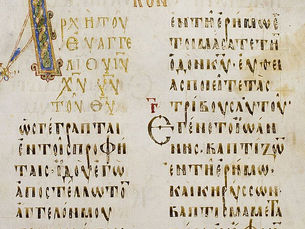 ΚΟΝ
ΑΡΧΗ ΤΟΥ
ΕΥΑΓΓΕ
ΛΙΟΥ ΙΥ
ΧΥ ΥΥ
ΤΟΥ ΘΥ
ΩΣ ΓΕΓΡΑΠΤΑΙ
ΕΝ ΤΟΙΣ ΠΡΟΦΗ
ΤΑΙΣ· ΙΔΟΥ ΕΓΩ
ΑΠΟΣΤΕΛΛΩ ΤΟΝ
ΑΓΓΕΛΟΝ ΜΟΥ
ΕΝ ΤΗ ΕΡΗΜΩ Ε
ΤΟΙΜΑΣΑΤΕ ΤΗΝ
ΟΔΟΝ ΚΥ· ΕΥΘΕΙ
ΑΣ ΠΟΙΕΙΤΕ ΤΑΣ
ΤΡΙΒΟΥΣ ΑΥΤΟΥ·
ΕΓΕΝΕΤΟ ΙΩΑΝ
ΝΗΣ ΒΑΠΤΙΖΩΝ
ΕΝ ΤΗ ΕΡΗΜΩ
ΚΑΙ ΚΗΡΥΣΣΩΝ
ΒΑΠΤΙΣΜΑ ΜΕΤΑ